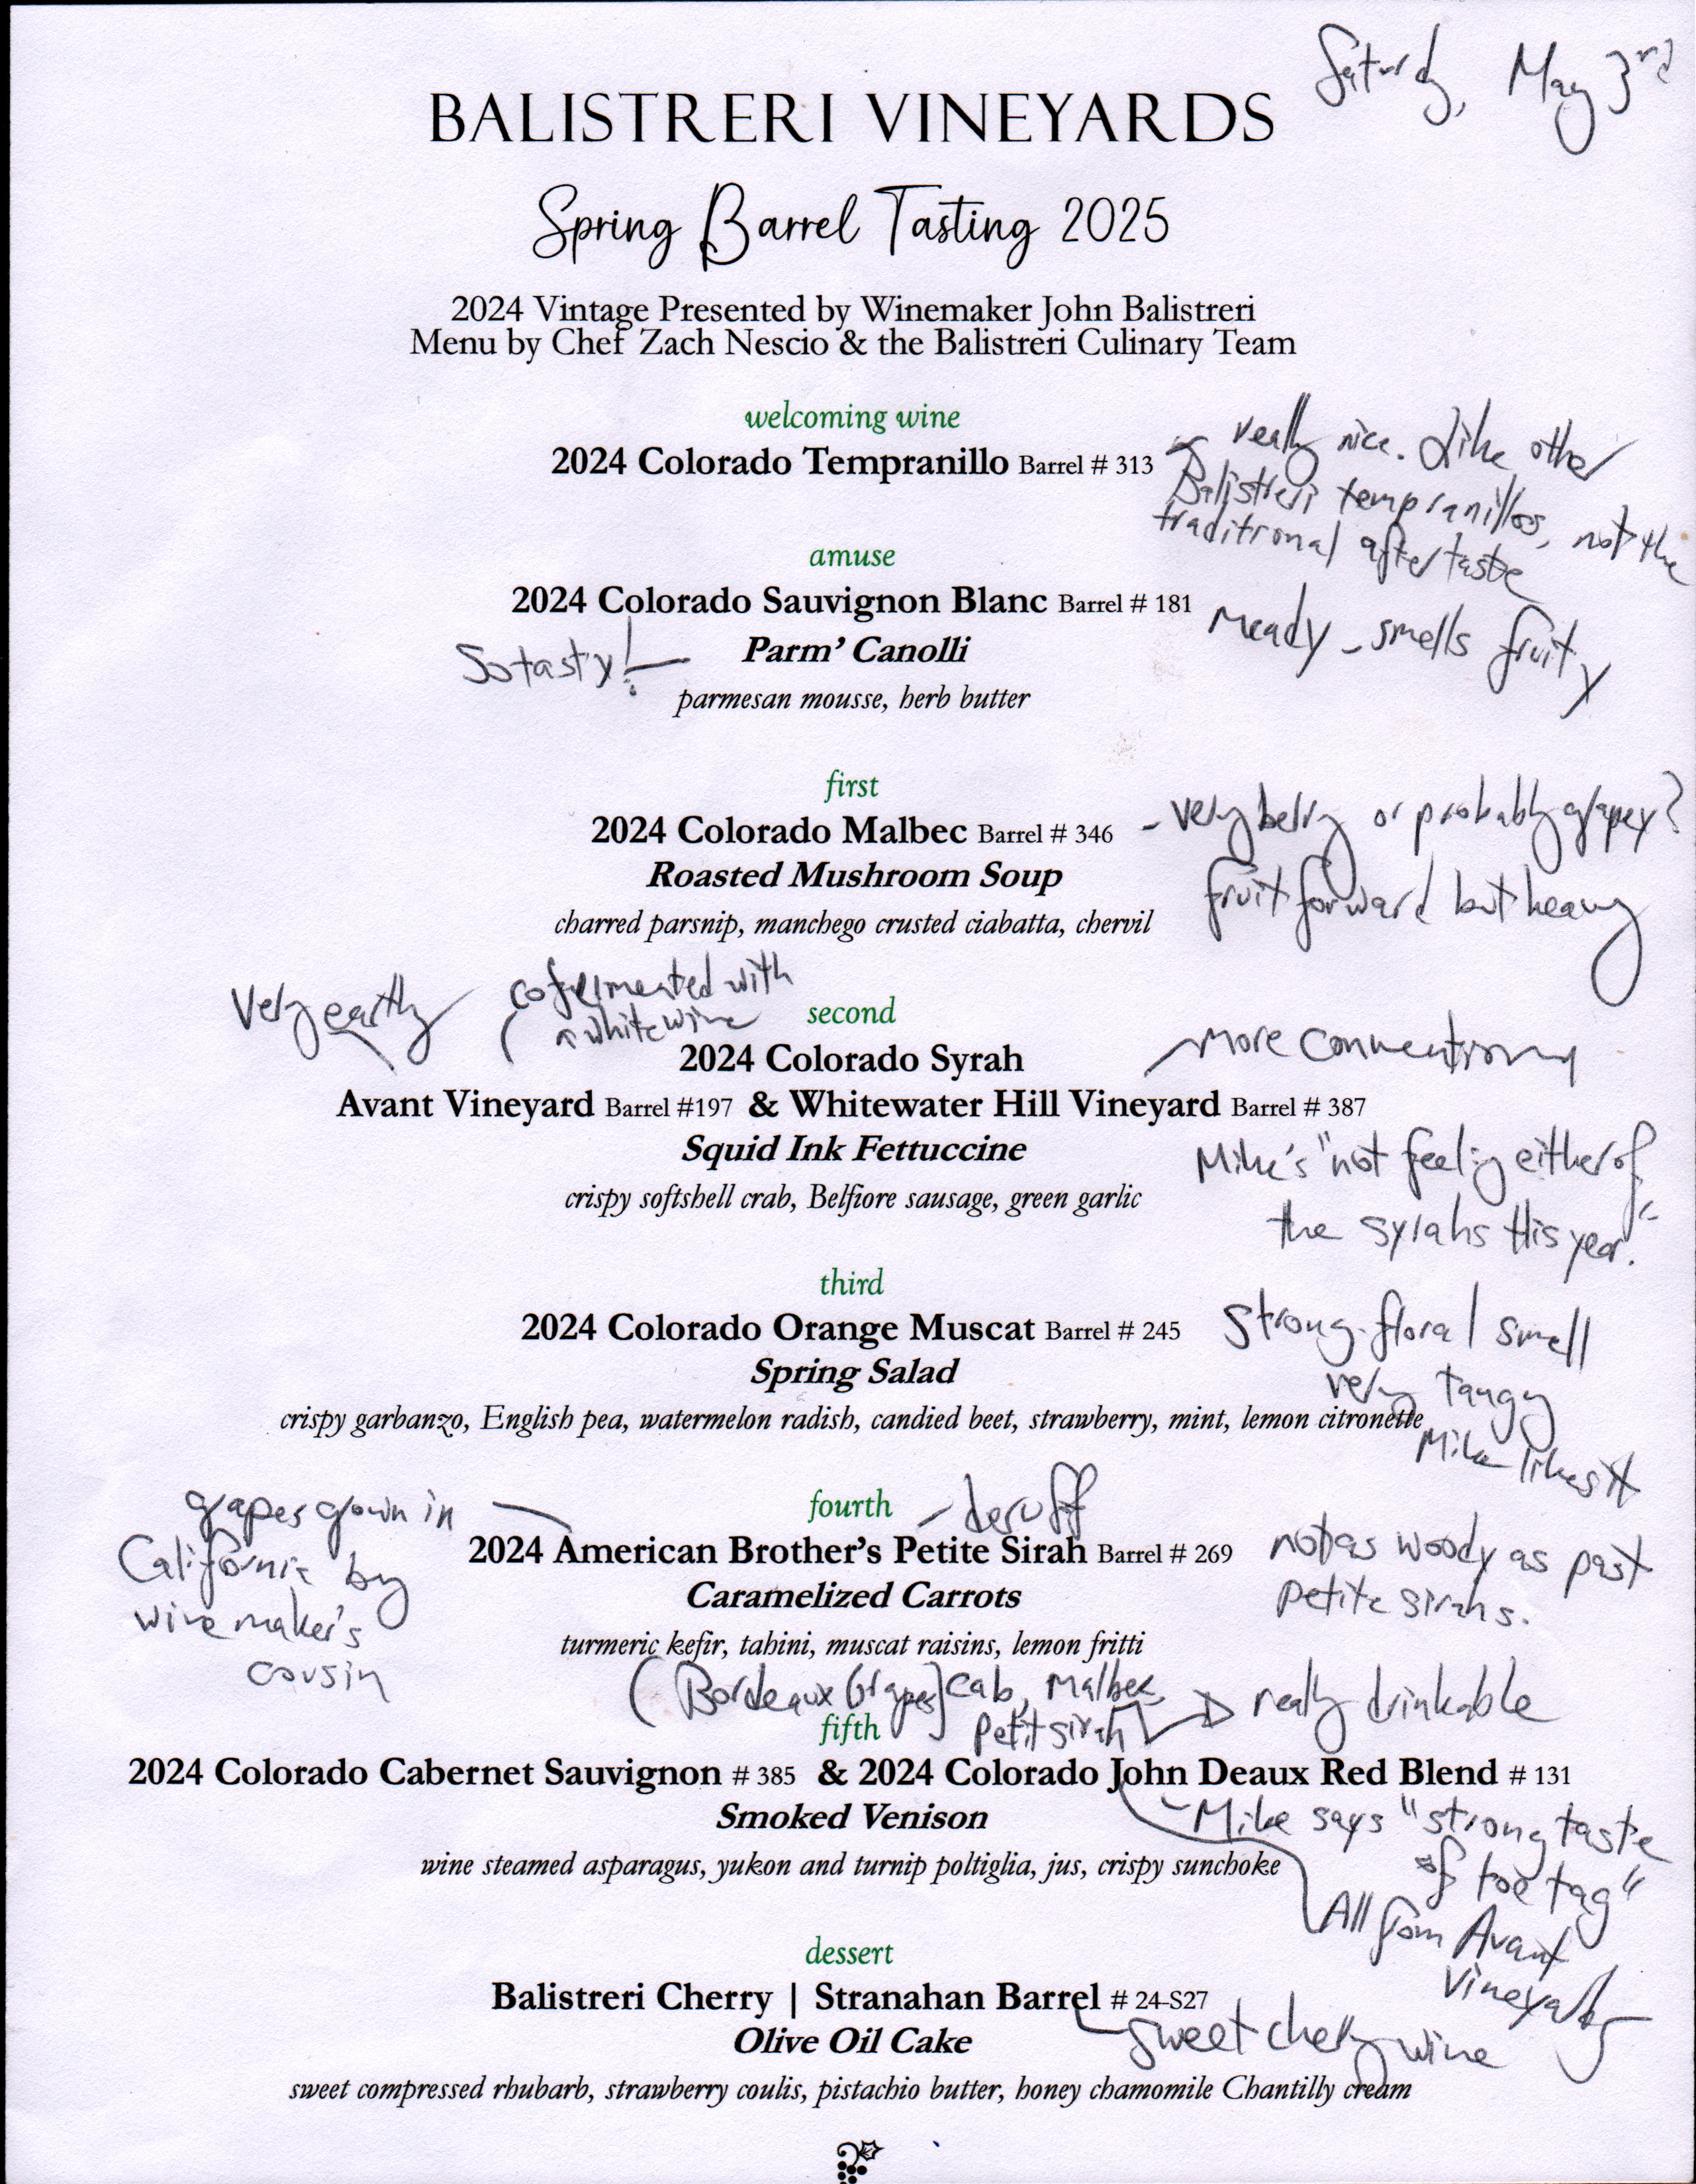 Saturdy, May 3rd
BALISTRERI VINEYARDS
Spring Barrel Tasting 2025
2024 Vintage Presented by Winemaker John Balistreri
Menu by Chef Zach Nescio & the Balistreri Culinary Team
welcoming wine
2024 Colorado Tempranillo Barrel # 313
really nice. Like other
Balistreri tempranillos, not the
traditional aftertaste
amuse
2024 Colorado Sauvignon Blanc Barrel # 181
Meady - smells fruity
So tasty!
Parm' Canolli
parmesan mousse, herb butter
first
2024 Colorado Malbec Barrel # 346
- very berry or probably grapey?
Roasted Mushroom Soup
fruit forward but heavy
charred parsnip, manchego crusted ciabatta, chervil
Very earthy
cofermented with
a white wine
second
more conventional
2024 Colorado Syrah
Avant Vineyard Barrel #197 & Whitewater Hill Vineyard Barrel # 387
Squid Ink Fettuccine
crispy softshell crab, Belfiore sausage, green garlic
Mike's "not feeling either of
the syrahs this year."
third
2024 Colorado Orange Muscat Barrel # 245
Strong floral smell
very tangy
Mike likes it
Spring Salad
crispy garbanzo, English pea, watermelon radish, candied beet, strawberry, mint, lemon citronette
grapes grown in
California by
winemaker's
cousin
fourth
2024 American Brother's Petite Sirah Barrel # 269
not as woody as past
petite sirahs.
Caramelized Carrots
turmeric kefir, tahini, muscat raisins, lemon fritti
(Bordeaux Grapes) Cab, Malbec,
Petit sirah
really drinkable
fifth
2024 Colorado Cabernet Sauvignon # 385 & 2024 Colorado John Deaux Red Blend # 131
Smoked Venison
wine steamed asparagus, yukon and turnip poltiglia, jus, crispy sunchoke
- Mike says "strong taste
of toe tag"
All from Avant
Vineyards
dessert
Balistreri Cherry | Stranahan Barrel # 24-S27
sweet cherry wine
Olive Oil Cake
sweet compressed rhubarb, strawberry coulis, pistachio butter, honey chamomile Chantilly cream